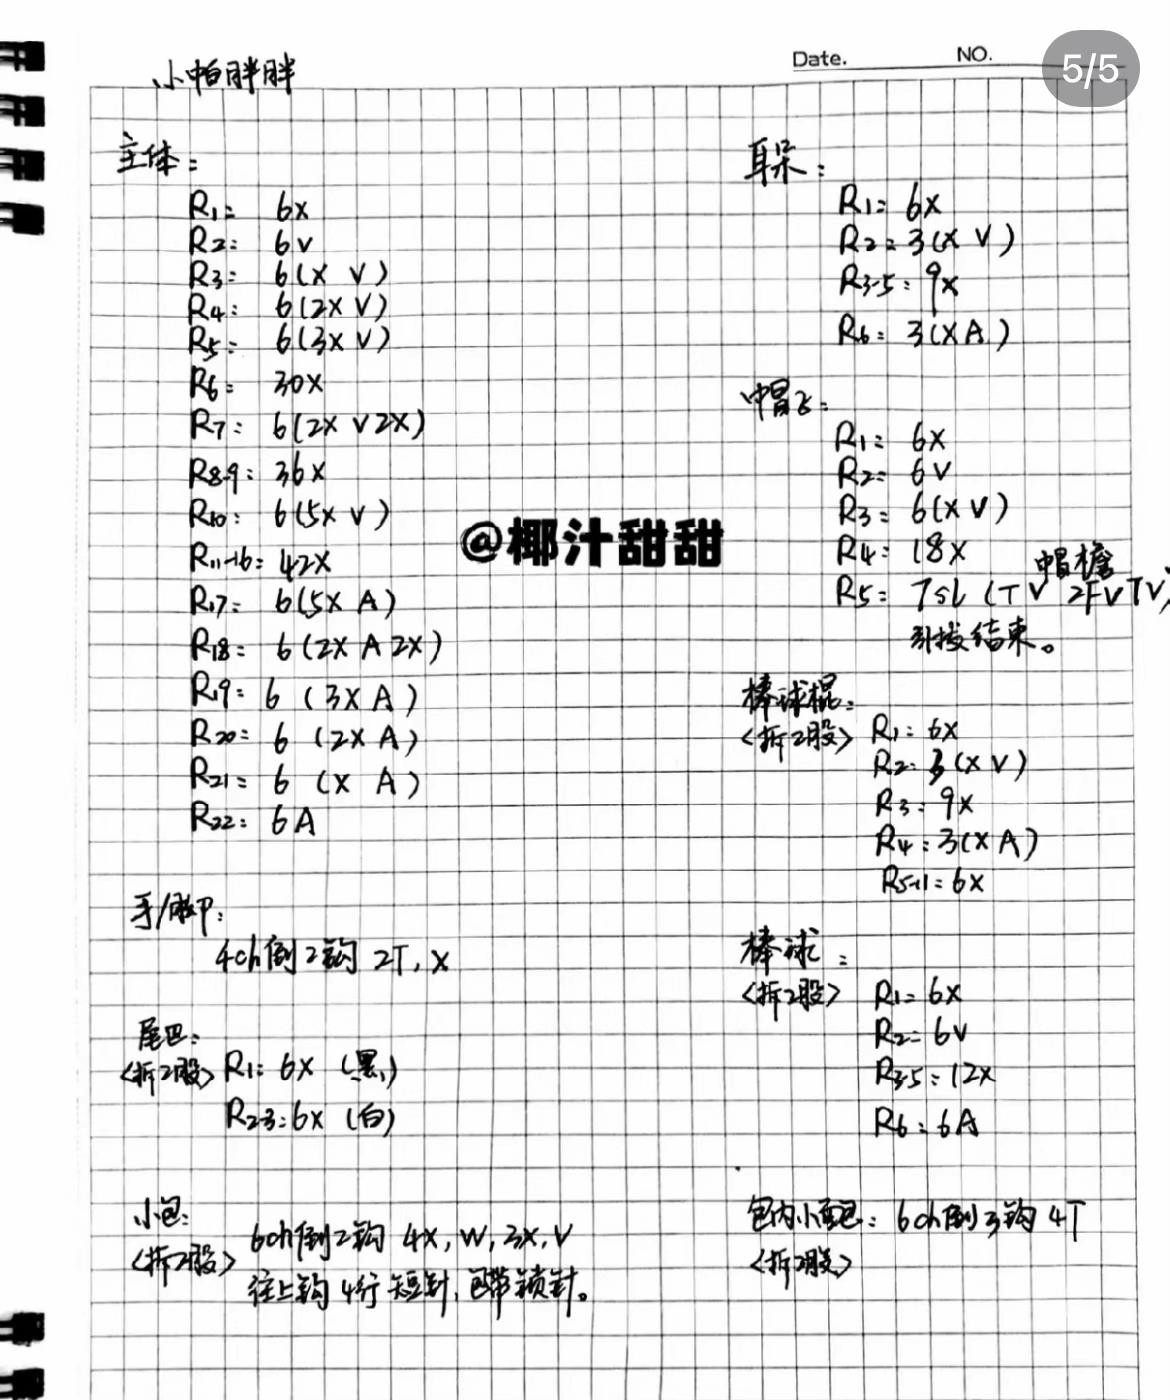 Date. NO.
5/5
小帕胖胖
主体:
R1: 6X
R2: 6V
R3: 6(X V)
R4: 6(2X V)
R5: 6(3X V)
R6: 30X
R7: 6(2X V 2X)
R8-9: 36X
R10: 6(5X V)
R11-16: 42X
R17: 6(5X A)
R18: 6(2X A 2X)
R19: 6 (3X A)
R20: 6 (2X A)
R21: 6 (X A)
R22: 6A
手/脚:
4ch倒2钩 2T, X
尾巴:
<拆2股> R1: 6X (黑)
R2-3: 6X (白)
小包:
<拆2股> 6ch倒2钩 4X, W, 3X, V
往上钩4行短针, 包带锁针。
@椰汁甜甜
耳朵:
R1: 6X
R2: 3(X V)
R3-5: 9X
R6: 3(X A)
帽子:
R1: 6X
R2: 6V
R3: 6(X V)
R4: 18X
帽檐
R5: 7sl (TV 2FV TV)
引拔结束。
棒球棍:
<拆2股> R1: 6X
R2: 3(X V)
R3: 9X
R4: 3(X A)
R5-11: 6X
棒球:
<拆2股> R1: 6X
R2: 6V
R3-5: 12X
R6: 6A
包内小面包: 6ch倒3钩 4T
<拆2股>